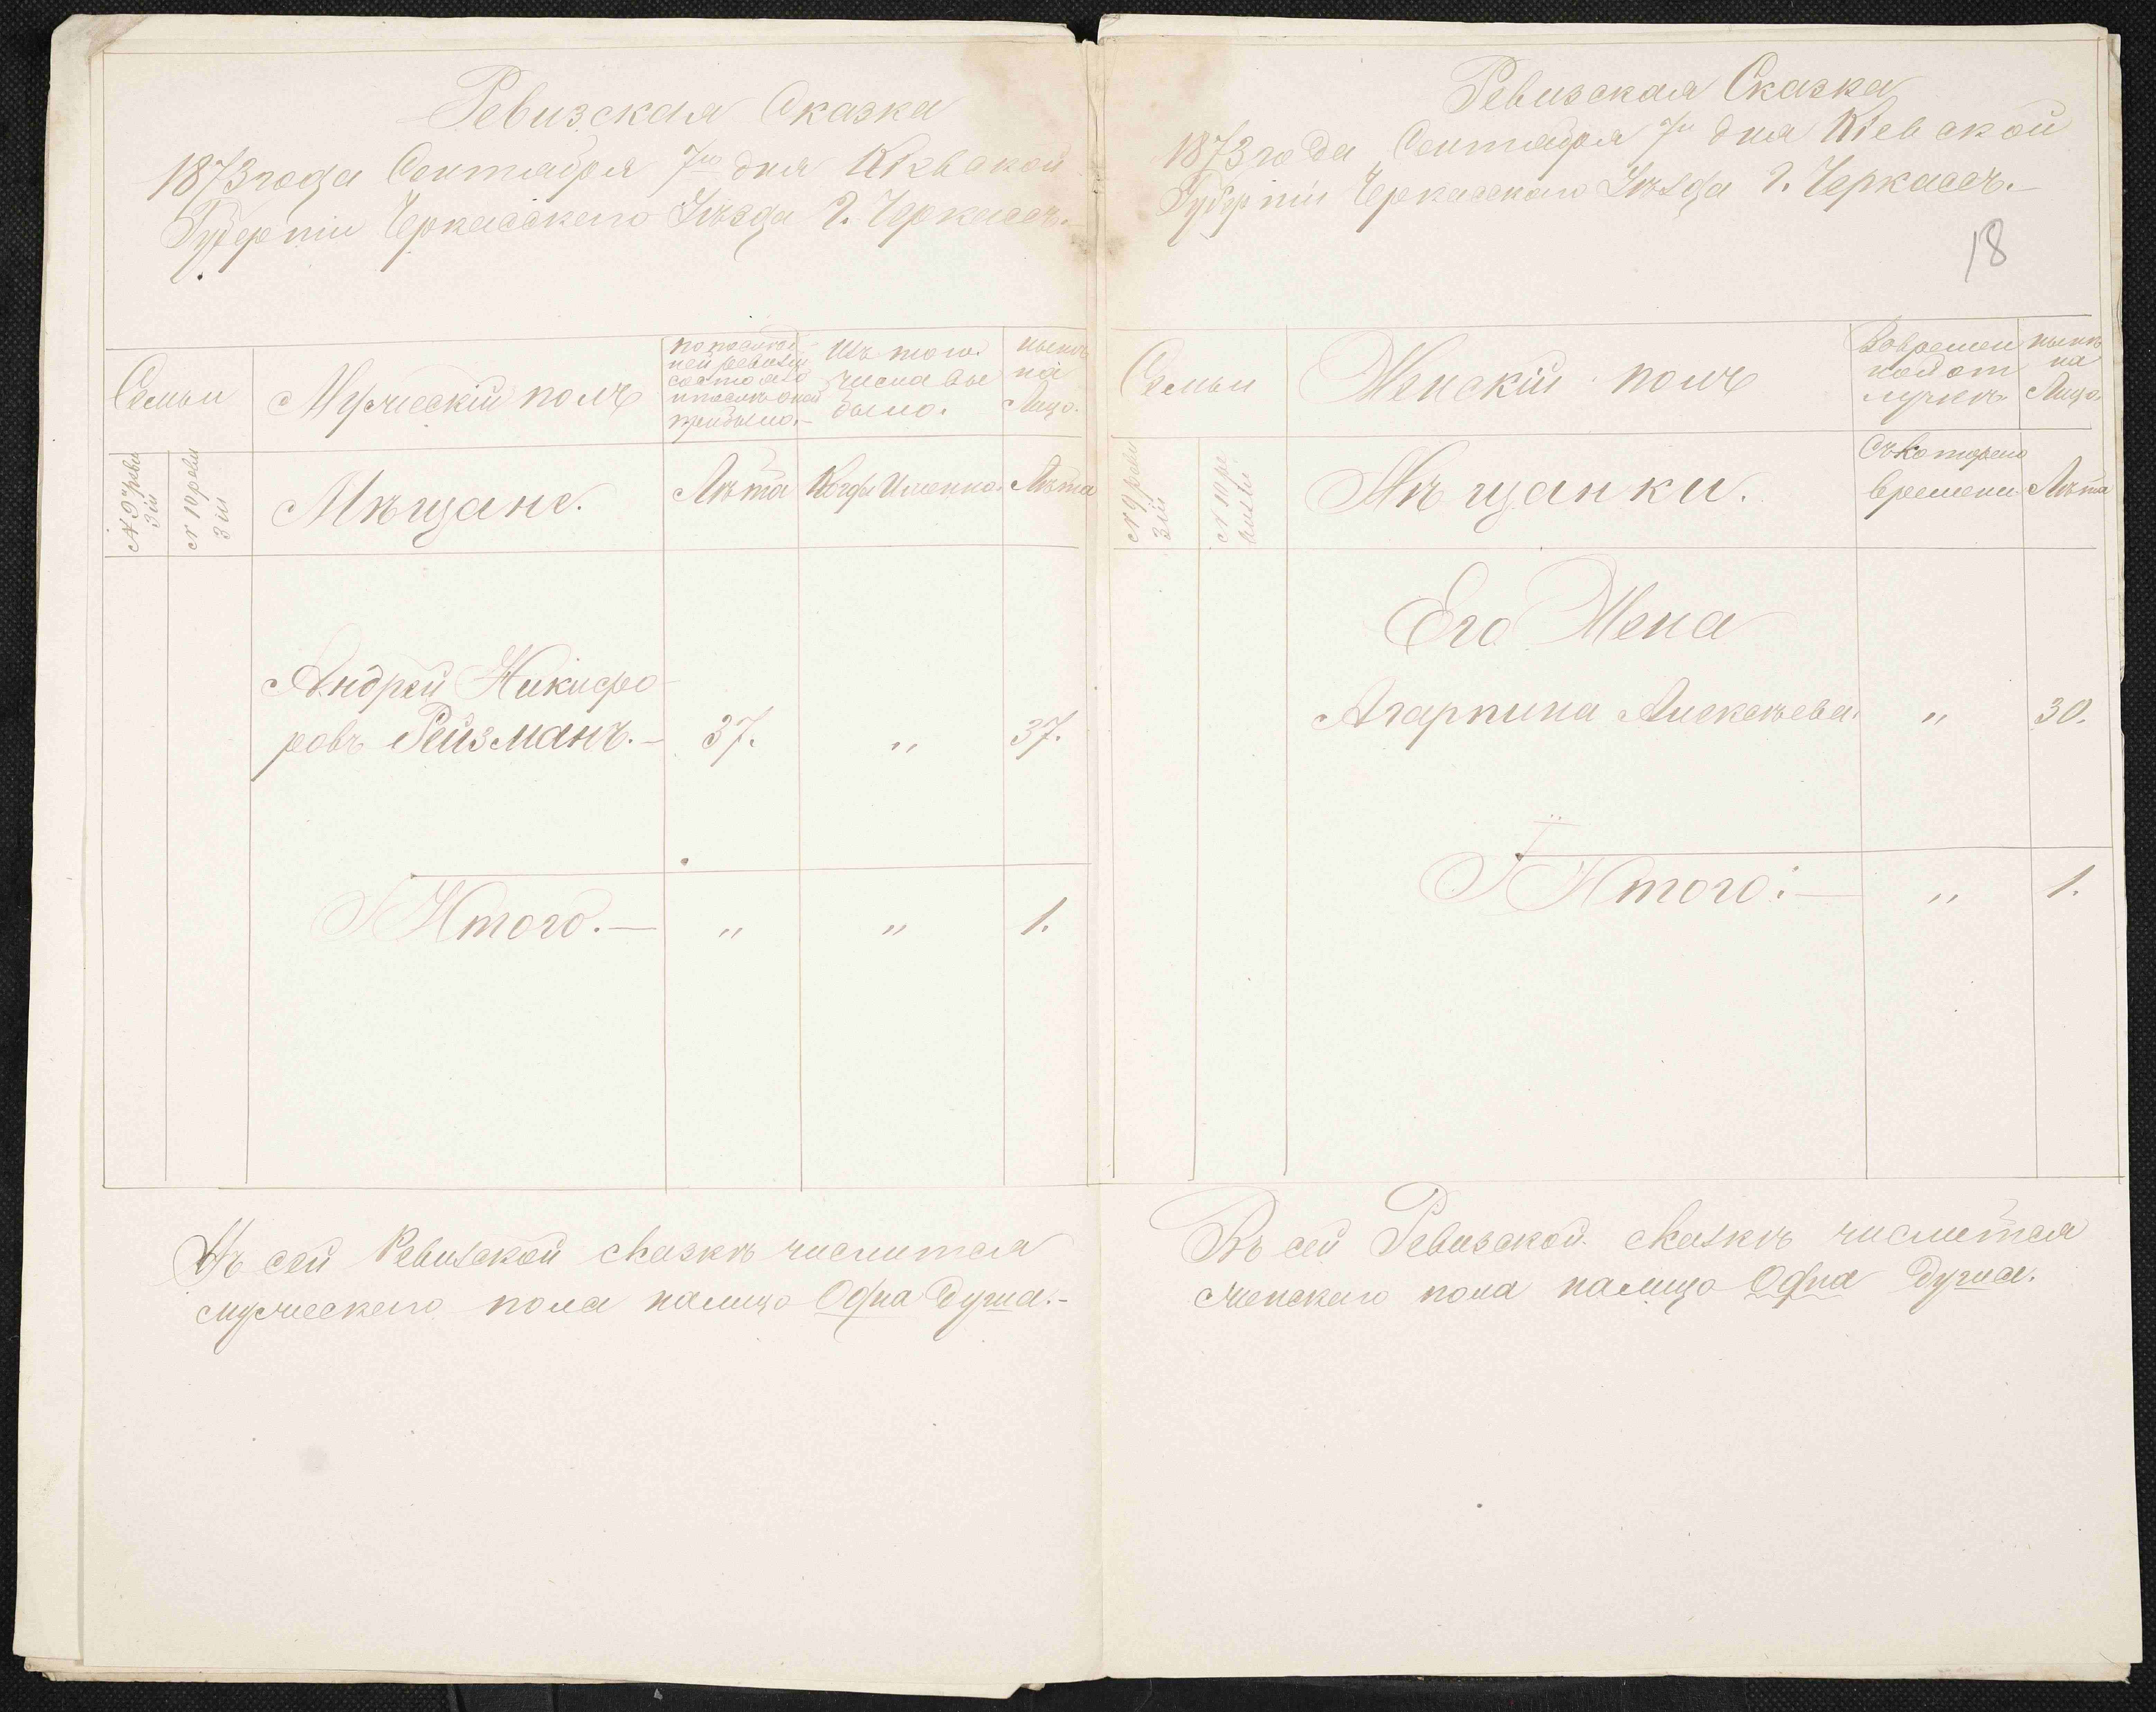 Ревизская Сказка
1873 года Сентября 7го дня Кіевской
Губерніи Черкасского Уѣзда г. Черкассъ.
Семьи
Мужескій полъ
по послѣд
ней ревизіи
состояло
и послѣ оной
прибыло.
Изъ того
числа вы
было.
нынѣ
на
Лицо.
№ 9й реви
зіи
№ 10 реви
зіи
Мѣщане.
Лѣта
Когда Именно
Лѣта
Андрей Никифо
ровъ Рейзманъ.
37.
"
37.
Итого.
"
"
1.
Въ сей Ревизской сказкѣ числится
мужеского пола налицо Одна Душа.
Ревизская Сказка
1873 года Сентября 7го дня Кіевской
Губерніи Черкасского Уѣзда г. Черкассъ.
18
Семьи
Женскій полъ
Во времен
ной от
лучкѣ
нынѣ
на
Лицо
№ 9 реви
зіи
№ 10 ре
визіи
Мѣщанки.
Съ котораго
времени
Лѣта
Его Жена
Агарпина Алексѣева
"
30.
Итого:
"
1.
Въ сей Ревизской сказкѣ числится
женскаго пола налицо Одна Душа.